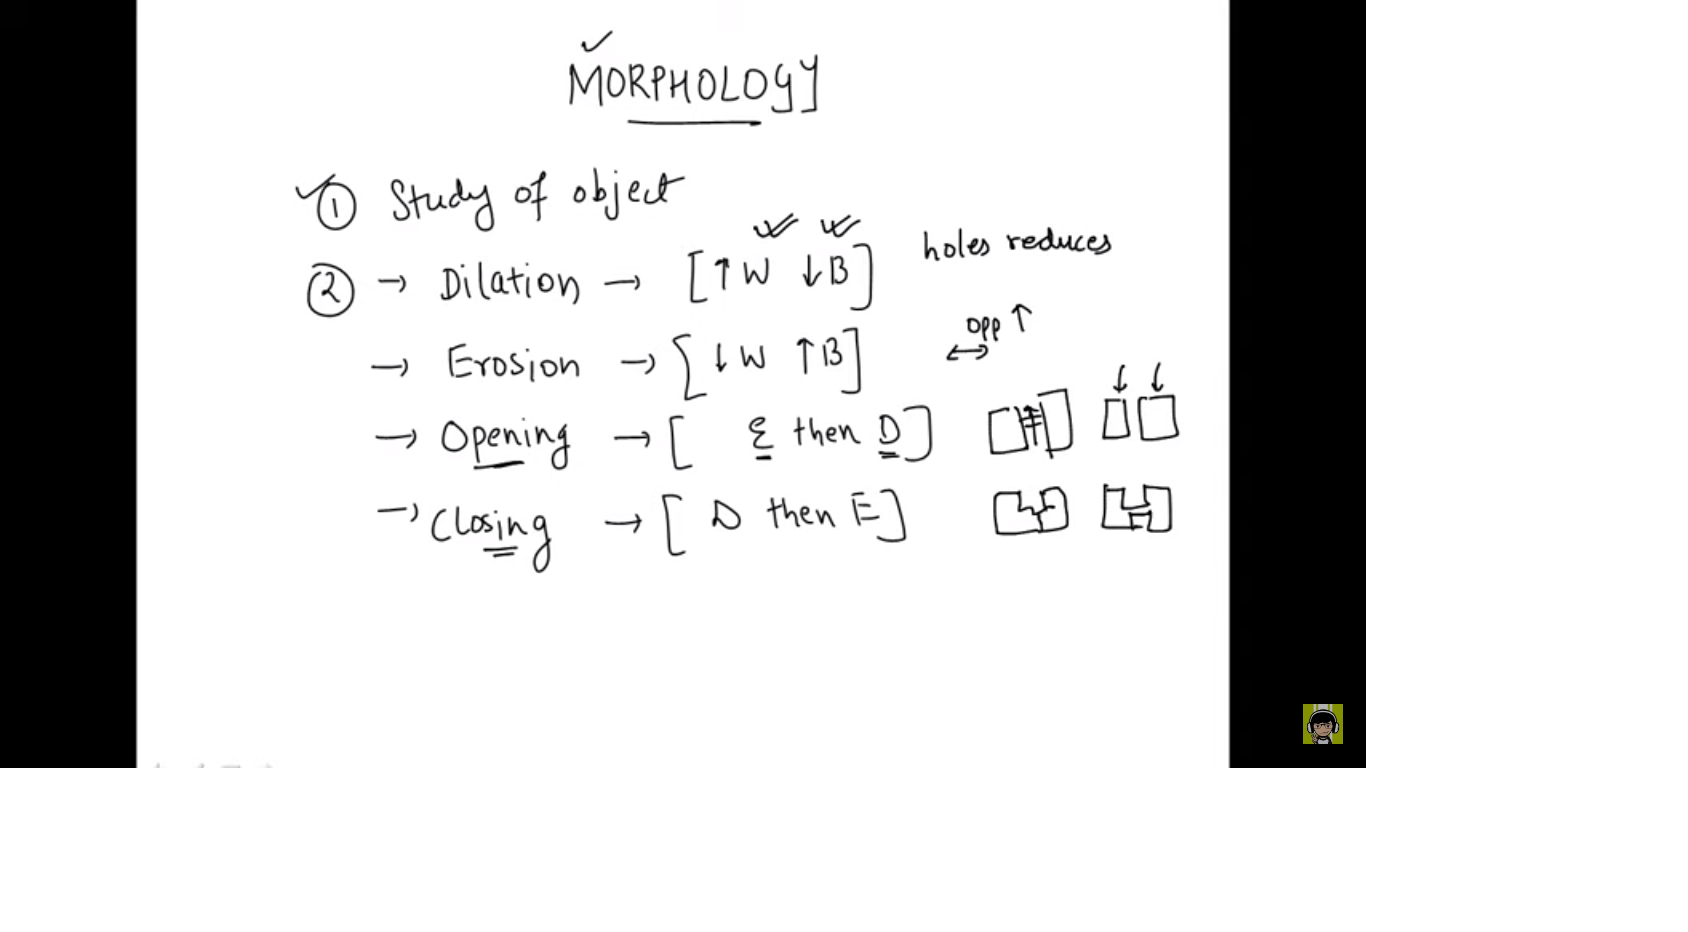 MORPHOLOGY
① Study of object
② → Dilation → [↑W ↓B] holes reduces
→ Erosion → [↓W ↑B] ↔ opp ↑
→ Opening → [ E then D]
→ Closing → [ D then E]